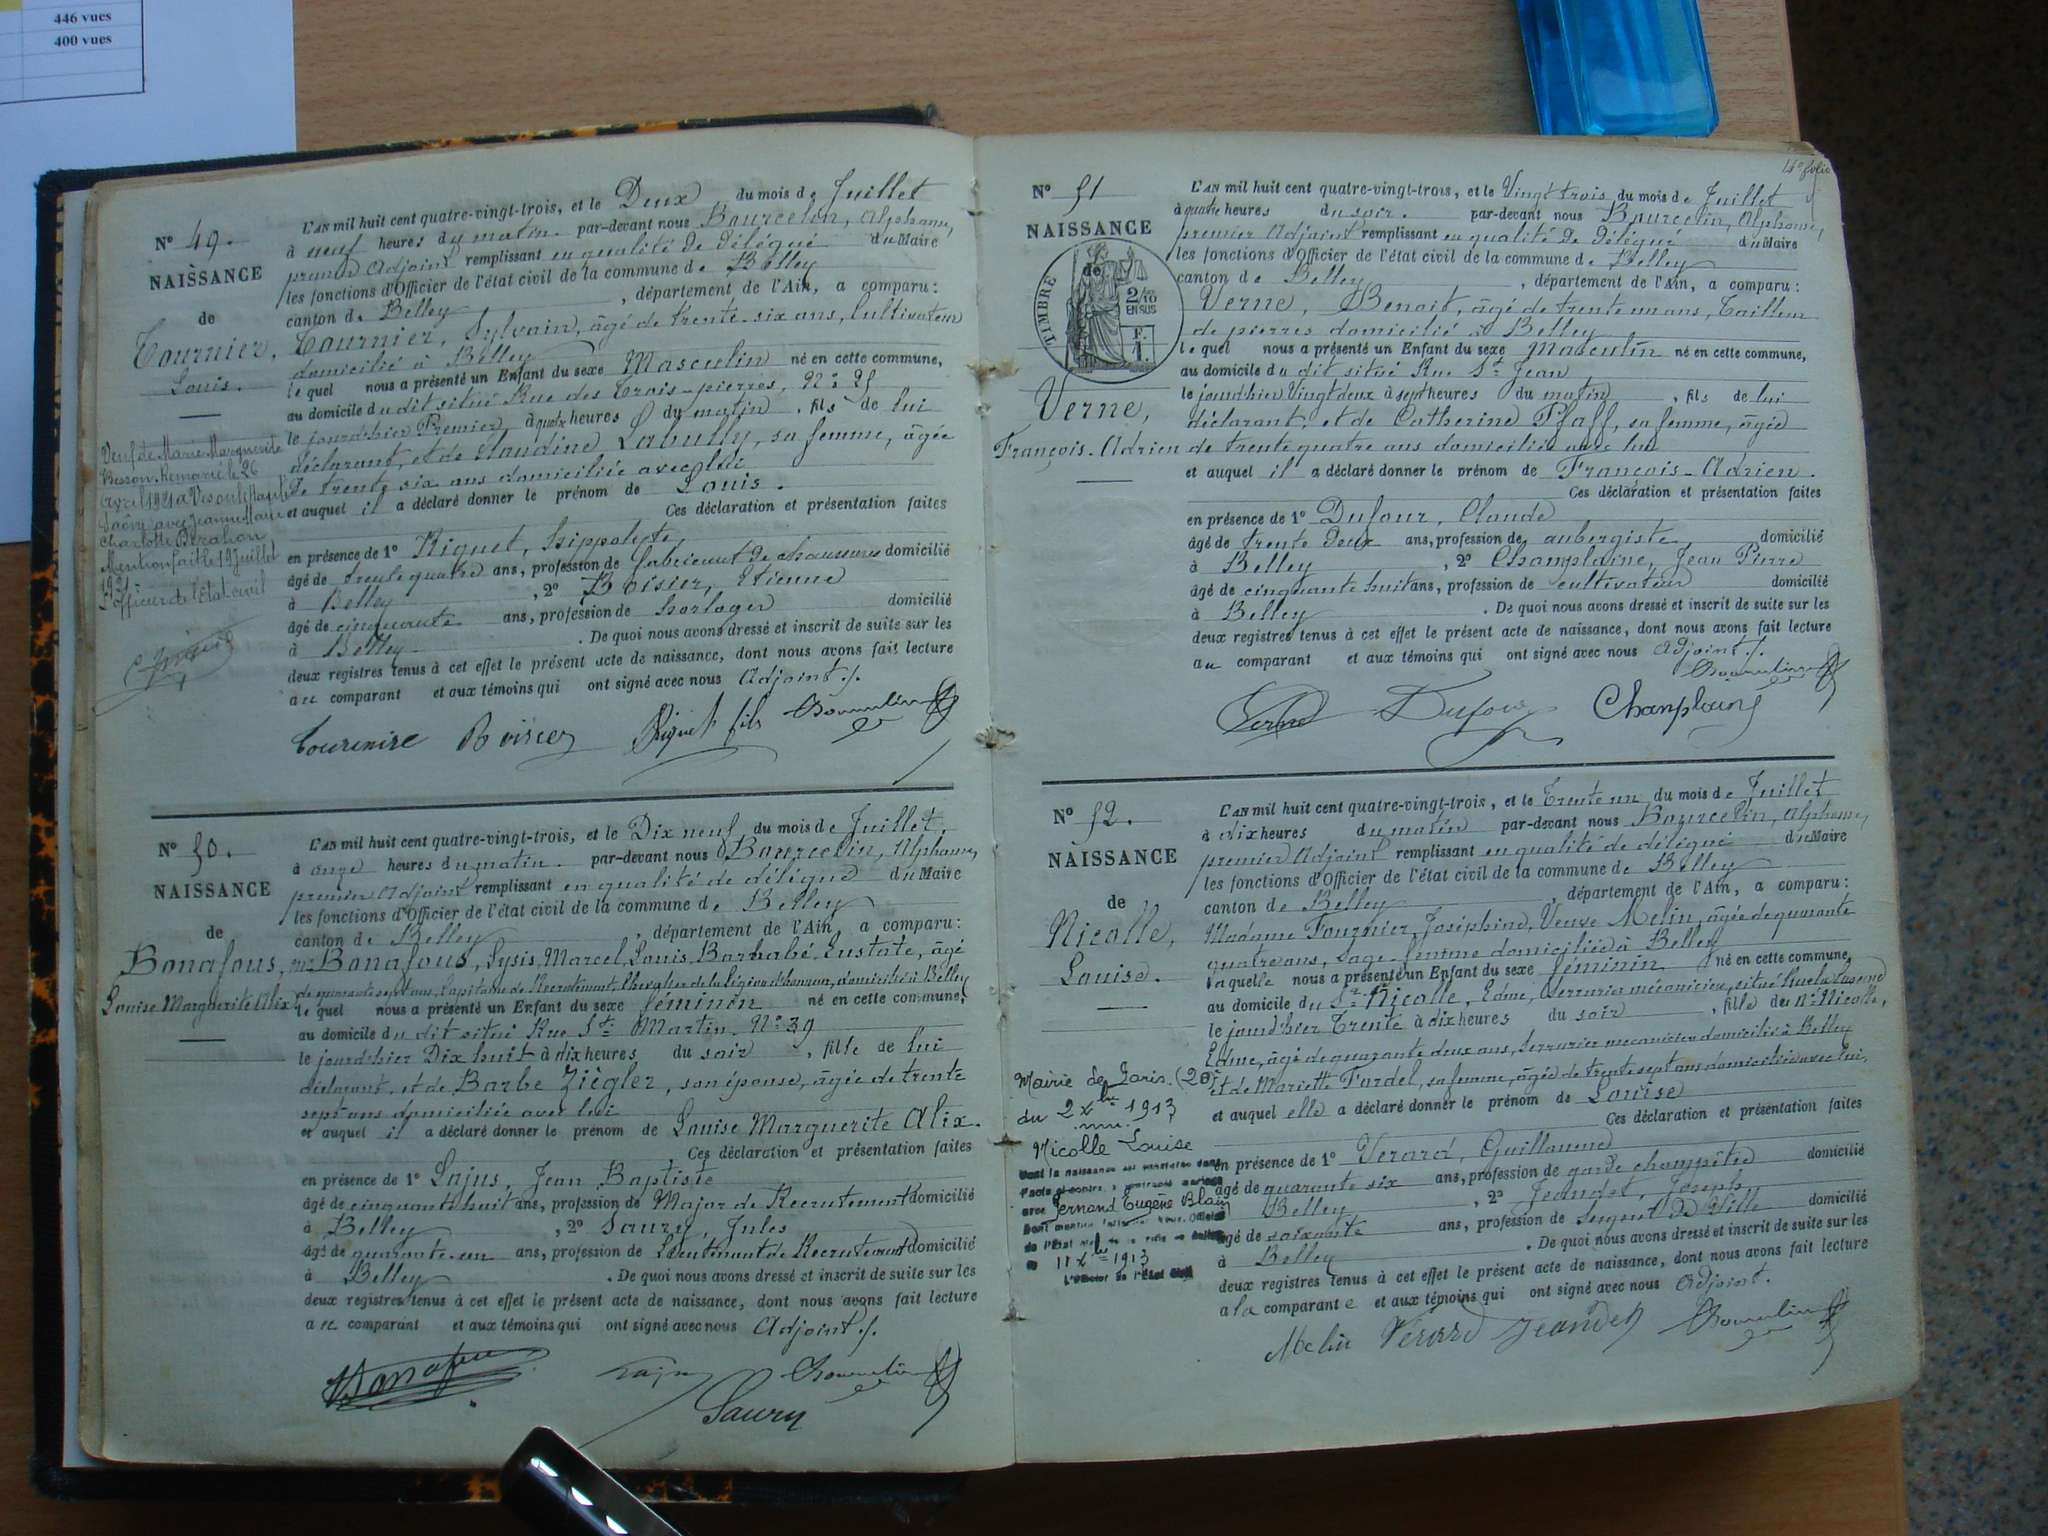 446 vues
400 vues
N° 49.
NAISSANCE
de
Tournier,
Louis.
Veuf de Marie Marguerite
Besson. Remarié le 26
avril 1921 à
avec Jeanne Marie
Charlotte
Mention faite le 19 Juillet
1921
L'officier de l'Etat civil
L'AN mil huit cent quatre-vingt-trois, et le Deux du mois de Juillet
à neuf heures du matin par-devant nous Bourcelin, Alphonse,
premier Adjoint remplissant en qualité de délégué du Maire
les fonctions d'Officier de l'état civil de la commune de Belley
canton de Belley, département de l'Ain, a comparu:
Tournier, Sylvain, âgé de trente-six ans, Cultivateur
domicilié à Belley
lequel nous a présenté un Enfant du sexe Masculin né en cette commune,
au domicile du dit situé Rue des Trois-pierres, N° 25
le jourd'hier Premier, à quatre heures du matin, fils de lui
déclarant, et de Claudine Labully, sa femme, âgée
de trente six ans domiciliée avec lui
et auquel il a déclaré donner le prénom de Louis.
Ces déclaration et présentation faites
en présence de 1° Riguet, hippolyte,
âgé de trente quatre ans, profession de fabricant de chaussures domicilié
à Belley, 2° Boisier, Etienne
âgé de cinquante ans, profession de horloger domicilié
à Belley. De quoi nous avons dressé et inscrit de suite sur les
deux registres tenus à cet effet le présent acte de naissance, dont nous avons fait lecture
au comparant et aux témoins qui ont signé avec nous Adjoint./.
Riguet fils Bourcelin
N° 50.
NAISSANCE
de
Bonafous,
Louise Marguerite Alix
L'AN mil huit cent quatre-vingt-trois, et le Dix neuf du mois de Juillet,
à onze heures du matin. par-devant nous Bourcelin, Alphonse,
premier Adjoint remplissant en qualité de délégué du Maire
les fonctions d'Officier de l'état civil de la commune de Belley
canton de Belley, département de l'Ain, a comparu:
Mr Bonafous, Lysis, Marcel, Louis, Barnabé, Eustate, âgé
de quarante sept ans, Capitaine de Recrutement, Chevalier de la Légion d'honneur, domicilié à Belley
lequel nous a présenté un Enfant du sexe féminin né en cette commune,
au domicile du dit situé Rue St Martin N° 39
le jourd'hier Dix huit à dix heures du soir, fille de lui
déclarant, et de Barbe Ziègler, son épouse, âgée de trente
sept ans domiciliée avec lui
et auquel il a déclaré donner le prénom de Louise Marguerite Alix.
Ces déclaration et présentation faites
en présence de 1° Lajus, Jean Baptiste
âgé de cinquante huit ans, profession de Major de Recrutement domicilié
à Belley, 2° Saury, Jules
âgé de quarante-un ans, profession de Lieutenant de Recrutement domicilié
à Belley. De quoi nous avons dressé et inscrit de suite sur les
deux registres tenus à cet effet le présent acte de naissance, dont nous avons fait lecture
au comparant et aux témoins qui ont signé avec nous Adjoint./.
Bonafous Lajus Bourcelin
Saury
14e folio
N° 51
NAISSANCE
de
TIMBRE
2/10
EN SUS
F.
1.
Verne,
François-Adrien
L'AN mil huit cent quatre-vingt-trois, et le Vingt trois du mois de Juillet
à quatre heures du soir. par-devant nous Bourcelin, Alphonse,
premier Adjoint remplissant en qualité de délégué du Maire
les fonctions d'Officier de l'état civil de la commune de Belley
canton de Belley, département de l'Ain, a comparu:
Verne, Benoit, âgé de trente un ans, Tailleur
de pierres domicilié à Belley
lequel nous a présenté un Enfant du sexe Masculin né en cette commune,
au domicile du dit situé Rue St Jean
le jourd'hier Vingt deux à sept heures du matin, fils de lui
déclarant, et de Catherine Pfaff, sa femme, âgée
de trente quatre ans domiciliée avec lui
et auquel il a déclaré donner le prénom de François-Adrien.
Ces déclaration et présentation faites
en présence de 1° Dufour, Claude
âgé de trente deux ans, profession de aubergiste domicilié
à Belley, 2° Champlaine, Jean Pierre
âgé de cinquante huit ans, profession de cultivateur domicilié
à Belley. De quoi nous avons dressé et inscrit de suite sur les
deux registres tenus à cet effet le présent acte de naissance, dont nous avons fait lecture
au comparant et aux témoins qui ont signé avec nous Adjoint./.
Bourcelin
Verne Dufour
N° 52.
NAISSANCE
de
Nicolle,
Louise.
Mairie de Paris. (20e)
du 2 Xbre 1913
Nicolle Louise
dont la naissance est constatée dans
l'acte ci-contre, a contracté mariage
avec Fernand Eugène Blain
Dont mention faite par Nous, Officier
de l'État civil
11 Xbre 1913
L'Officier de l'État Civil
L'AN mil huit cent quatre-vingt-trois, et le Trente un du mois de Juillet
à dix heures du matin par-devant nous Bourcelin, Alphonse,
premier Adjoint remplissant en qualité de délégué du Maire
les fonctions d'Officier de l'état civil de la commune de Belley
canton de Belley, département de l'Ain, a comparu:
Madame Fournier, Joséphine, Veuve Melin, âgée de quarante
quatre ans, sage-femme domiciliée à Belley
laquelle nous a présenté un Enfant du sexe féminin né en cette commune,
au domicile du Sr Nicolle, Edme, Serrurier mécanicien, situé
le jourd'hier Trente à dix heures du soir, fille du Sr Nicolle,
Edme, âgé de quarante deux ans, Serrurier mécanicien domicilié à Belley
et de Mariette Fardel, sa femme, âgée de trente sept ans domiciliée avec lui,
et auquel elle a déclaré donner le prénom de Louise
Ces déclaration et présentation faites
en présence de 1° Verard, Guillaume
âgé de quarante six ans, profession de garde champêtre domicilié
Belley, 2° Jeandet, Joseph
âgé de soixante ans, profession de Sergent de Ville domicilié
à Belley. De quoi nous avons dressé et inscrit de suite sur les
deux registres tenus à cet effet le présent acte de naissance, dont nous avons fait lecture
a la comparante et aux témoins qui ont signé avec nous Adjoint.
Melin Verard Jeandet Bourcelin